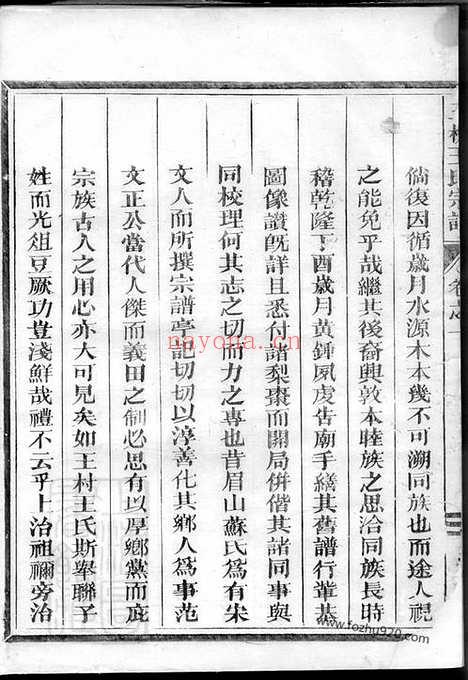 王村王氏宗譜 卷之一
倘復因循歲月水源木本幾不可溯同族也而途人視
之能免乎哉繼其後裔興敦本睦族之思洽同族長時
稽乾隆丁酉歲月黃鍾夙虔告廟手繕其舊譜行葦甚
圖像讚既詳且悉付諸梨棗而開局併偕其諸同事與
同校理何其志之切而力之專也昔眉山蘇氏為有宋
文人而所撰宗譜亭記切切以淳善化其鄉人為事范
文正公當代人傑而義田之制必思有以厚鄉黨而庇
宗族古人之用心亦大可見矣如王村王氏斯舉聯子
姓而光俎豆厥功豈淺鮮哉禮不云乎上治祖禰旁治
nayona.cn
www.fozhu920.com